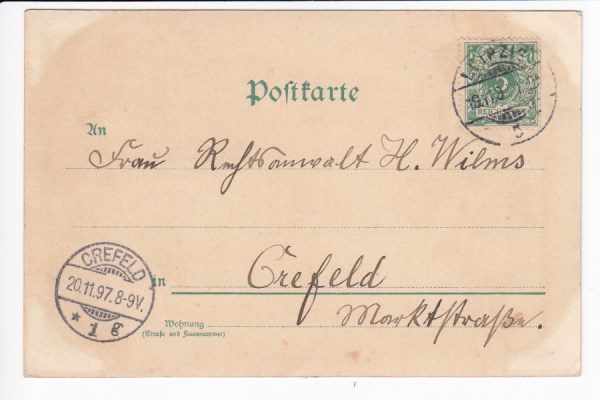 LEIPZIG
5
REICHSPOST
Postkarte
An
Frau Rechtsanwalt H. Wilms
CREFELD
20.11.97. 8-9V.
* 1 e
in Crefeld
Marktstraße.
Wohnung
(Straße und Hausnummer)